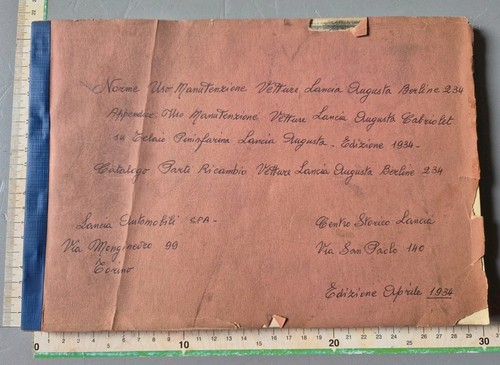 Norme Uso Manutenzione Vetture Lancia Augusta Berline 234
Appendice: Uso Manutenzione Vetture Lancia Augusta Cabriolet
su Telaio Pininfarina Lancia Augusta - Edizione 1934 -
Catalogo Parti Ricambio Vetture Lancia Augusta Berline 234
Lancia Automobili SPA -
Via Monginevro 99
Torino
Centro Storico Lancia
Via San Paolo 140
Edizione Aprile 1934
10
20
30